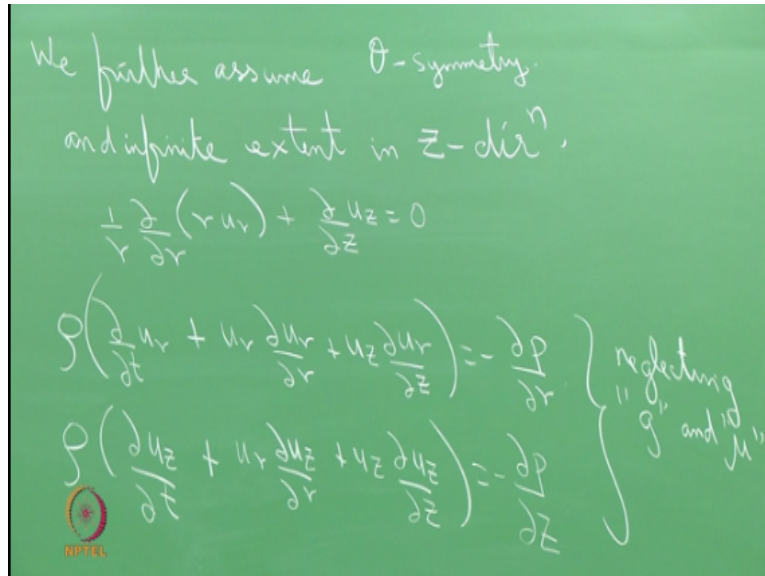 We further assume θ-symmetry.
and infinite extent in z-dirⁿ.
1/r ∂/∂r (r uᵣ) + ∂/∂z u_z = 0
ρ(∂/∂t uᵣ + uᵣ ∂uᵣ/∂r + u_z ∂uᵣ/∂z) = -∂p/∂r
ρ(∂u_z/∂t + uᵣ ∂u_z/∂r + u_z ∂u_z/∂z) = -∂p/∂z
} neglecting
"g" and "μ"
NPTEL